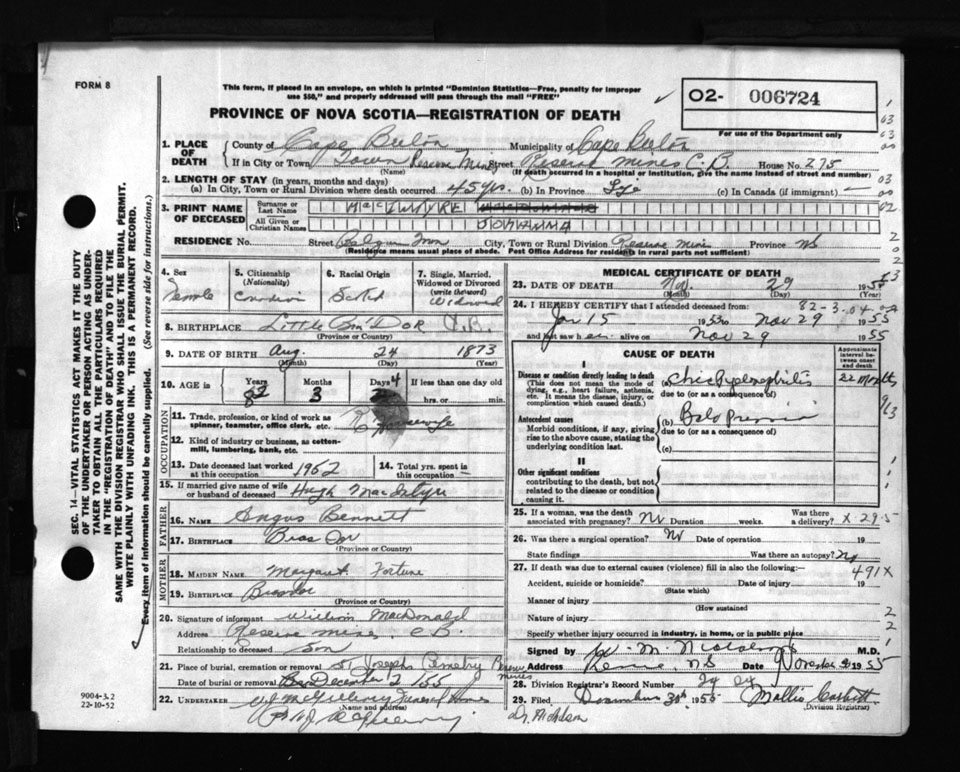 FORM 8
This form, if placed in an envelope, on which is printed "Dominion Statistics—Free, penalty for improper
use $50," and properly addressed will pass through the mail "FREE"
O2- 006724
For use of the Department only
PROVINCE OF NOVA SCOTIA—REGISTRATION OF DEATH
1. PLACE OF DEATH
County of Cape Breton Municipality of Cape Breton
If in City or Town Town Reserve Mines Street Reserve mines C.B. House No. 275
(Name) (If death occurred in a hospital or institution, give the name instead of street and number)
2. LENGTH OF STAY (in years, months and days)
(a) In City, Town or Rural Division where death occurred 45 yrs. (b) In Province Life (c) In Canada (if immigrant) —
3. PRINT NAME OF DECEASED
Surname or Last Name MacINTYRE
All Given or Christian Names JOHANNA
RESIDENCE No. Street City, Town or Rural Division Reserve Mines Province NS
(Residence means usual place of abode. Post Office Address for residents in rural parts not sufficient)
4. Sex Female
5. Citizenship (Nationality) Canadian
6. Racial Origin
7. Single, Married, Widowed or Divorced (write the word) Widowed
8. BIRTHPLACE Little Bras D'OR C.B.
(Province or Country)
9. DATE OF BIRTH Aug. 24 1873
(Month) (Day) (Year)
10. AGE in Years 82 Months 3 Days 4 If less than one day old
hrs. or min.
OCCUPATION
11. Trade, profession, or kind of work as
spinner, teamster, office clerk, etc. Housewife
12. Kind of industry or business, as cotton-
mill, lumbering, bank, etc.
13. Date deceased last worked
at this occupation 1952
14. Total yrs. spent in
this occupation
15. If married give name of wife
or husband of deceased Hugh MacIntyre
FATHER
16. NAME Angus Bennett
17. BIRTHPLACE Bras Dor
(Province or Country)
MOTHER
18. MAIDEN NAME Margaret Fortune
19. BIRTHPLACE Brasdor
(Province or Country)
20. Signature of informant William MacDonald
Address Reserve mines, C.B.
Relationship to deceased Son
21. Place of burial, cremation or removal St Josephs Cemetry Reserve mines
Date of burial or removal December 2 155
22. UNDERTAKER Funeral Home
(Name and address)
MEDICAL CERTIFICATE OF DEATH
23. DATE OF DEATH Nov. 29 1955
(Month) (Day) (Year)
24. I HEREBY CERTIFY that I attended deceased from: 82-3-04
Jan 15 1953 to Nov 29 1955
and last saw her alive on Nov 29 1955
CAUSE OF DEATH
Approximate interval between onset and death
I
Disease or condition directly leading to death
(This does not mean the mode of
dying, e.g., heart failure, asthenia,
etc. It means the disease, injury, or
complication which caused death.)
(a) Chic Pyelonephritis 22 Months
due to (or as a consequence of)
Antecedent causes
Morbid conditions, if any, giving
rise to the above cause, stating the
underlying condition last.
(b)
due to (or as a consequence of)
(c)
II
Other significant conditions
contributing to the death, but not
related to the disease or condition
causing it.
25. If a woman, was the death
associated with pregnancy? No Duration weeks. Was there
a delivery? X-29-5
26. Was there a surgical operation? No Date of operation 19
State findings Was there an autopsy? No
27. If death was due to external causes (violence) fill in also the following:— 491X
Accident, suicide or homicide? Date of injury 19
(State which)
Manner of injury
(How sustained
Nature of injury
Specify whether injury occurred in industry, in home, or in public place
Signed by M.D.
Address NS Date November 1955
28. Division Registrar's Record Number
29. Filed 30th 1955 Mollie Corbett
Division Registrar
SEC. 14—VITAL STATISTICS ACT MAKES IT THE DUTY
OF THE UNDERTAKER OR PERSON ACTING AS UNDER-
TAKER TO OBTAIN ALL THE PARTICULARS REQUIRED
IN THE "REGISTRATION OF DEATH" AND TO FILE THE
SAME WITH THE DIVISION REGISTRAR WHO SHALL ISSUE THE BURIAL PERMIT.
WRITE PLAINLY WITH UNFADING INK. THIS IS A PERMANENT RECORD.
Every item of information should be carefully supplied. (See reverse side for instructions.)
9004-3.2
22-10-52